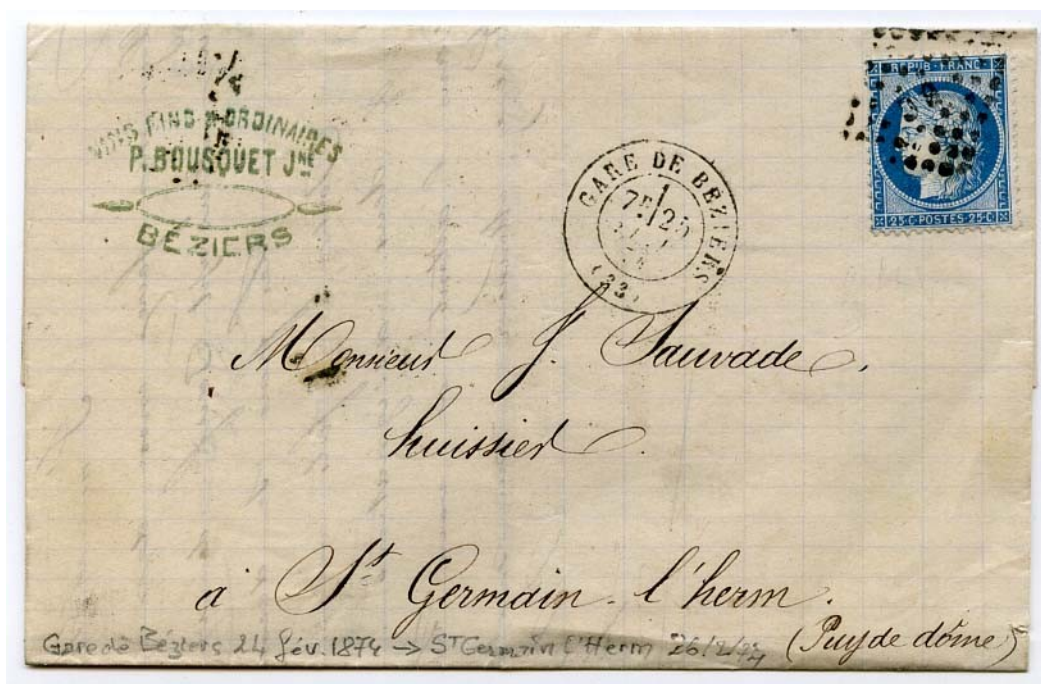 VINS FINS & ORDINAIRES
P. BOUSQUET JNE
BÉZIERS
GARE DE BÉZIERS
7E 25
(33)
REPUB · FRANC
25·C·POSTES·25·C
Monsieur J. Sauvade,
huissier
à St Germain-l'herm.
(Puy de dôme)
Gare de Béziers 24 fév. 1874 → ST Germain l'Herm 26/2/74